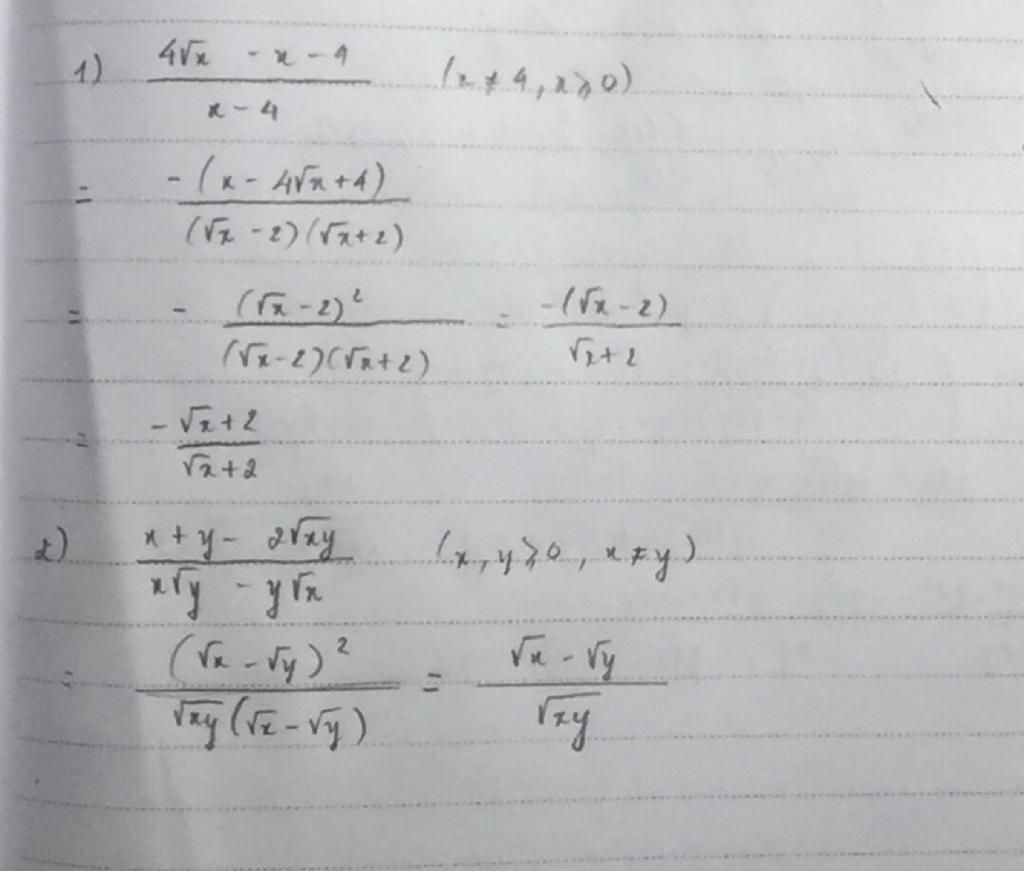 1) (4√x - x - 4)/(x - 4) (x ≠ 4, x ⩾ 0)
= -(x - 4√x + 4)/((√x - 2)(√x + 2))
= - (√x - 2)²/((√x - 2)(√x + 2)) = -(√x - 2)/(√x + 2)
= (-√x + 2)/(√x + 2)
2) (x + y - 2√xy)/(x√y - y√x) (x, y ⩾ 0, x ≠ y)
= (√x - √y)²/(√xy(√x - √y)) = (√x - √y)/√xy